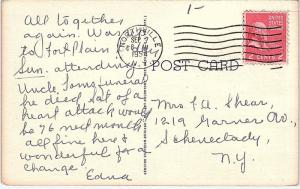 1-
All together
again. Was
to Fort Plain
Sun. attending
Uncle Toms funeral
he died Sat of a
heart attack would
be 76 next month
all fine here
wonderful for a
change.
Edna
KNOXVILLE
SEP
195
UNITED STATES
2 CENTS 2
POST CARD
Mrs F. A. Shear,
1219 Garner Ave.,
Schenectady,
N.Y.